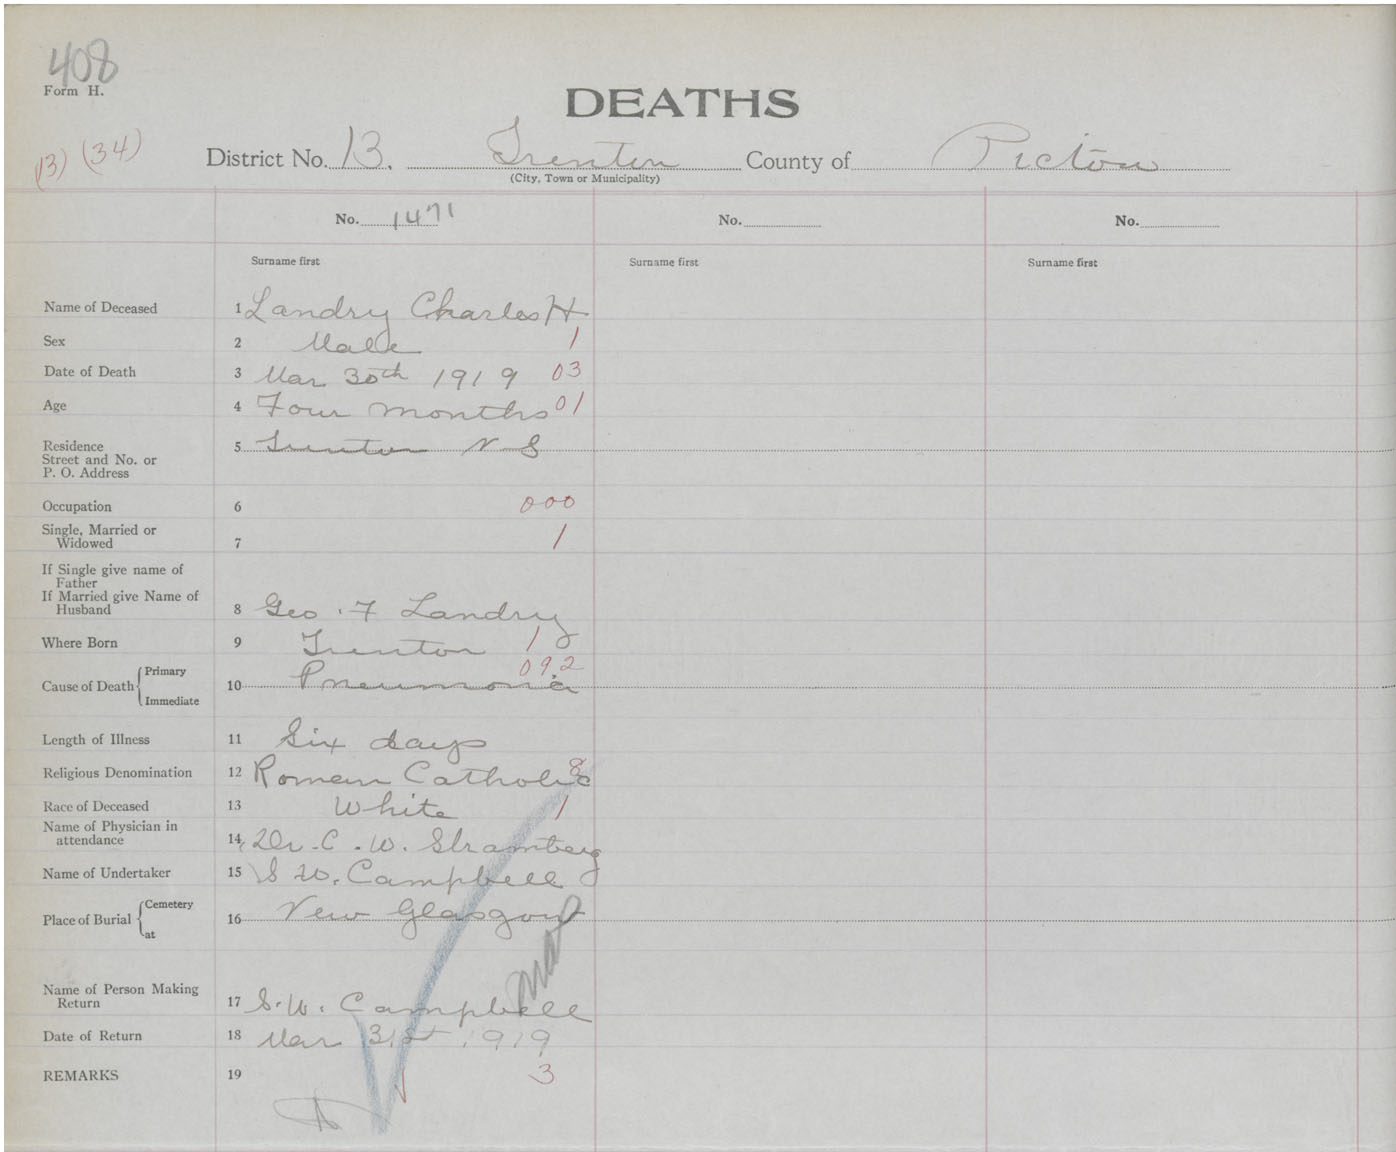 408
Form H.
DEATHS
13) (34)
District No. 13. Trenton County of Pictou
(City, Town or Municipality)
No. 1471 No. No.
Surname first Surname first Surname first
Name of Deceased 1 Landry Charles H
Sex 2 Male 1
Date of Death 3 Mar 30th 1919 03
Age 4 Four months 01
Residence 5 Trenton N S
Street and No. or
P. O. Address
Occupation 6 000
Single, Married or
Widowed 7 1
If Single give name of
Father
If Married give Name of
Husband 8 Geo. F Landry
Where Born 9 Trenton 1
092
Cause of Death { Primary
10 Pneumonia
Immediate
Length of Illness 11 Six days
Religious Denomination 12 Roman Catholic 8
Race of Deceased 13 White 1
Name of Physician in
attendance 14 Dr. C. W. Stramberg
Name of Undertaker 15 S W. Campbell
Place of Burial { Cemetery
16 New Glasgow
at
Mar
Name of Person Making
Return 17 S. W. Campbell
Date of Return 18 Mar 31st 1919
REMARKS 19 3